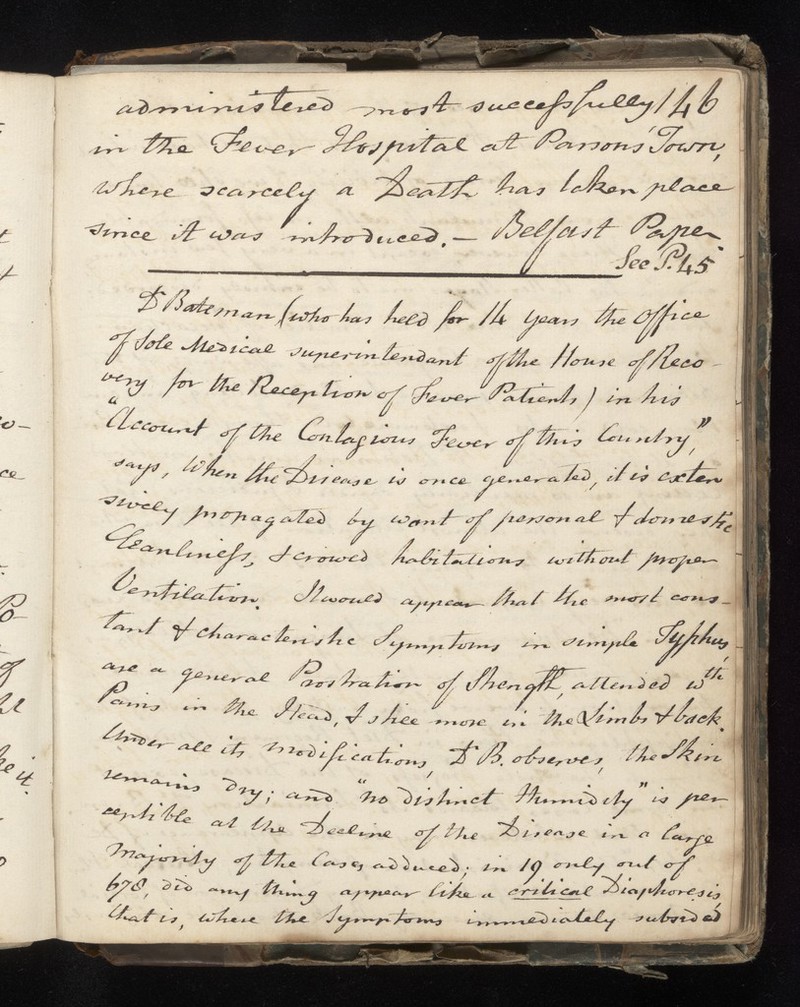 administered most successfully 146
in the Fever Hospital at Parsons' Town,
where scarcely a Death has taken place
since it was introduced. — Belfast Paper
See P. 45
Dr Bateman (who has held for 14 years the office
of Sole Medical superintendant of the House of Reco-
very for the Reception of Fever Patients) in his
"Account of the Contagious Fever of this Country",
says, When the Disease is once generated, it is exten
sively propagated by want of personal & domestic
Cleanliness, & crowed habitations without proper
Ventilation. It would appear that the most cons-
tant & characteristic Symptoms in simple Typhus,
are a general Prostration of Strength, attended wth
Pains in the Head, & still more in the Limbs & back.
Under all its modifications, Dr B. observes, the Skin
remains dry; and "no distinct Humidity" is per
ceptible at the Decline of the Disease in a large
Majority of the Cases adduced; in 19 only out of
678, did any thing appear like a critical Diaphoresis,
that is, where the Symptoms immediately subsided